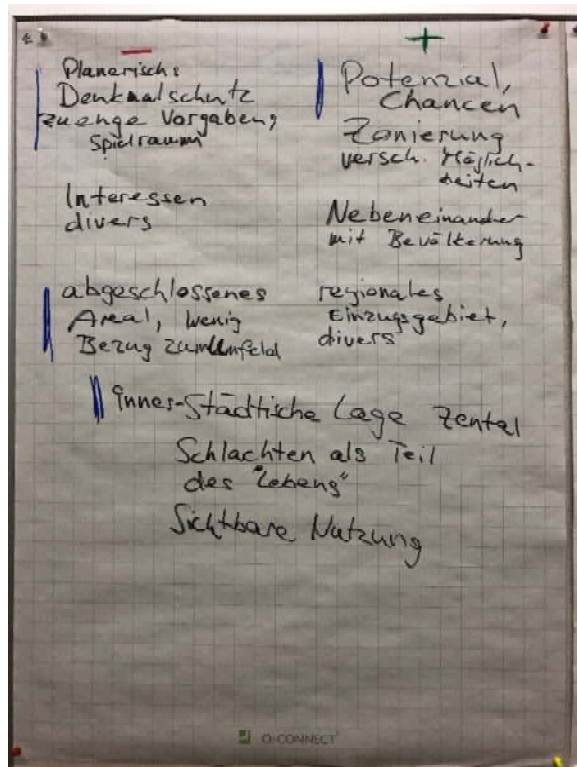 −
Planerisch:
Denkmalschutz
zu enge Vorgaben,
Spielraum
Interessen
divers
abgeschlossenes
Areal, wenig
Bezug zum Umfeld
+
Potenzial,
Chancen
Zonierung
versch. Möglich-
keiten
Nebeneinander
mit Bevölkerung
regionales
Einzugsgebiet,
divers
innerstädtische Lage zental
Schlachten als Teil
des "Lebens"
Sichtbare Nutzung
Q-CONNECT